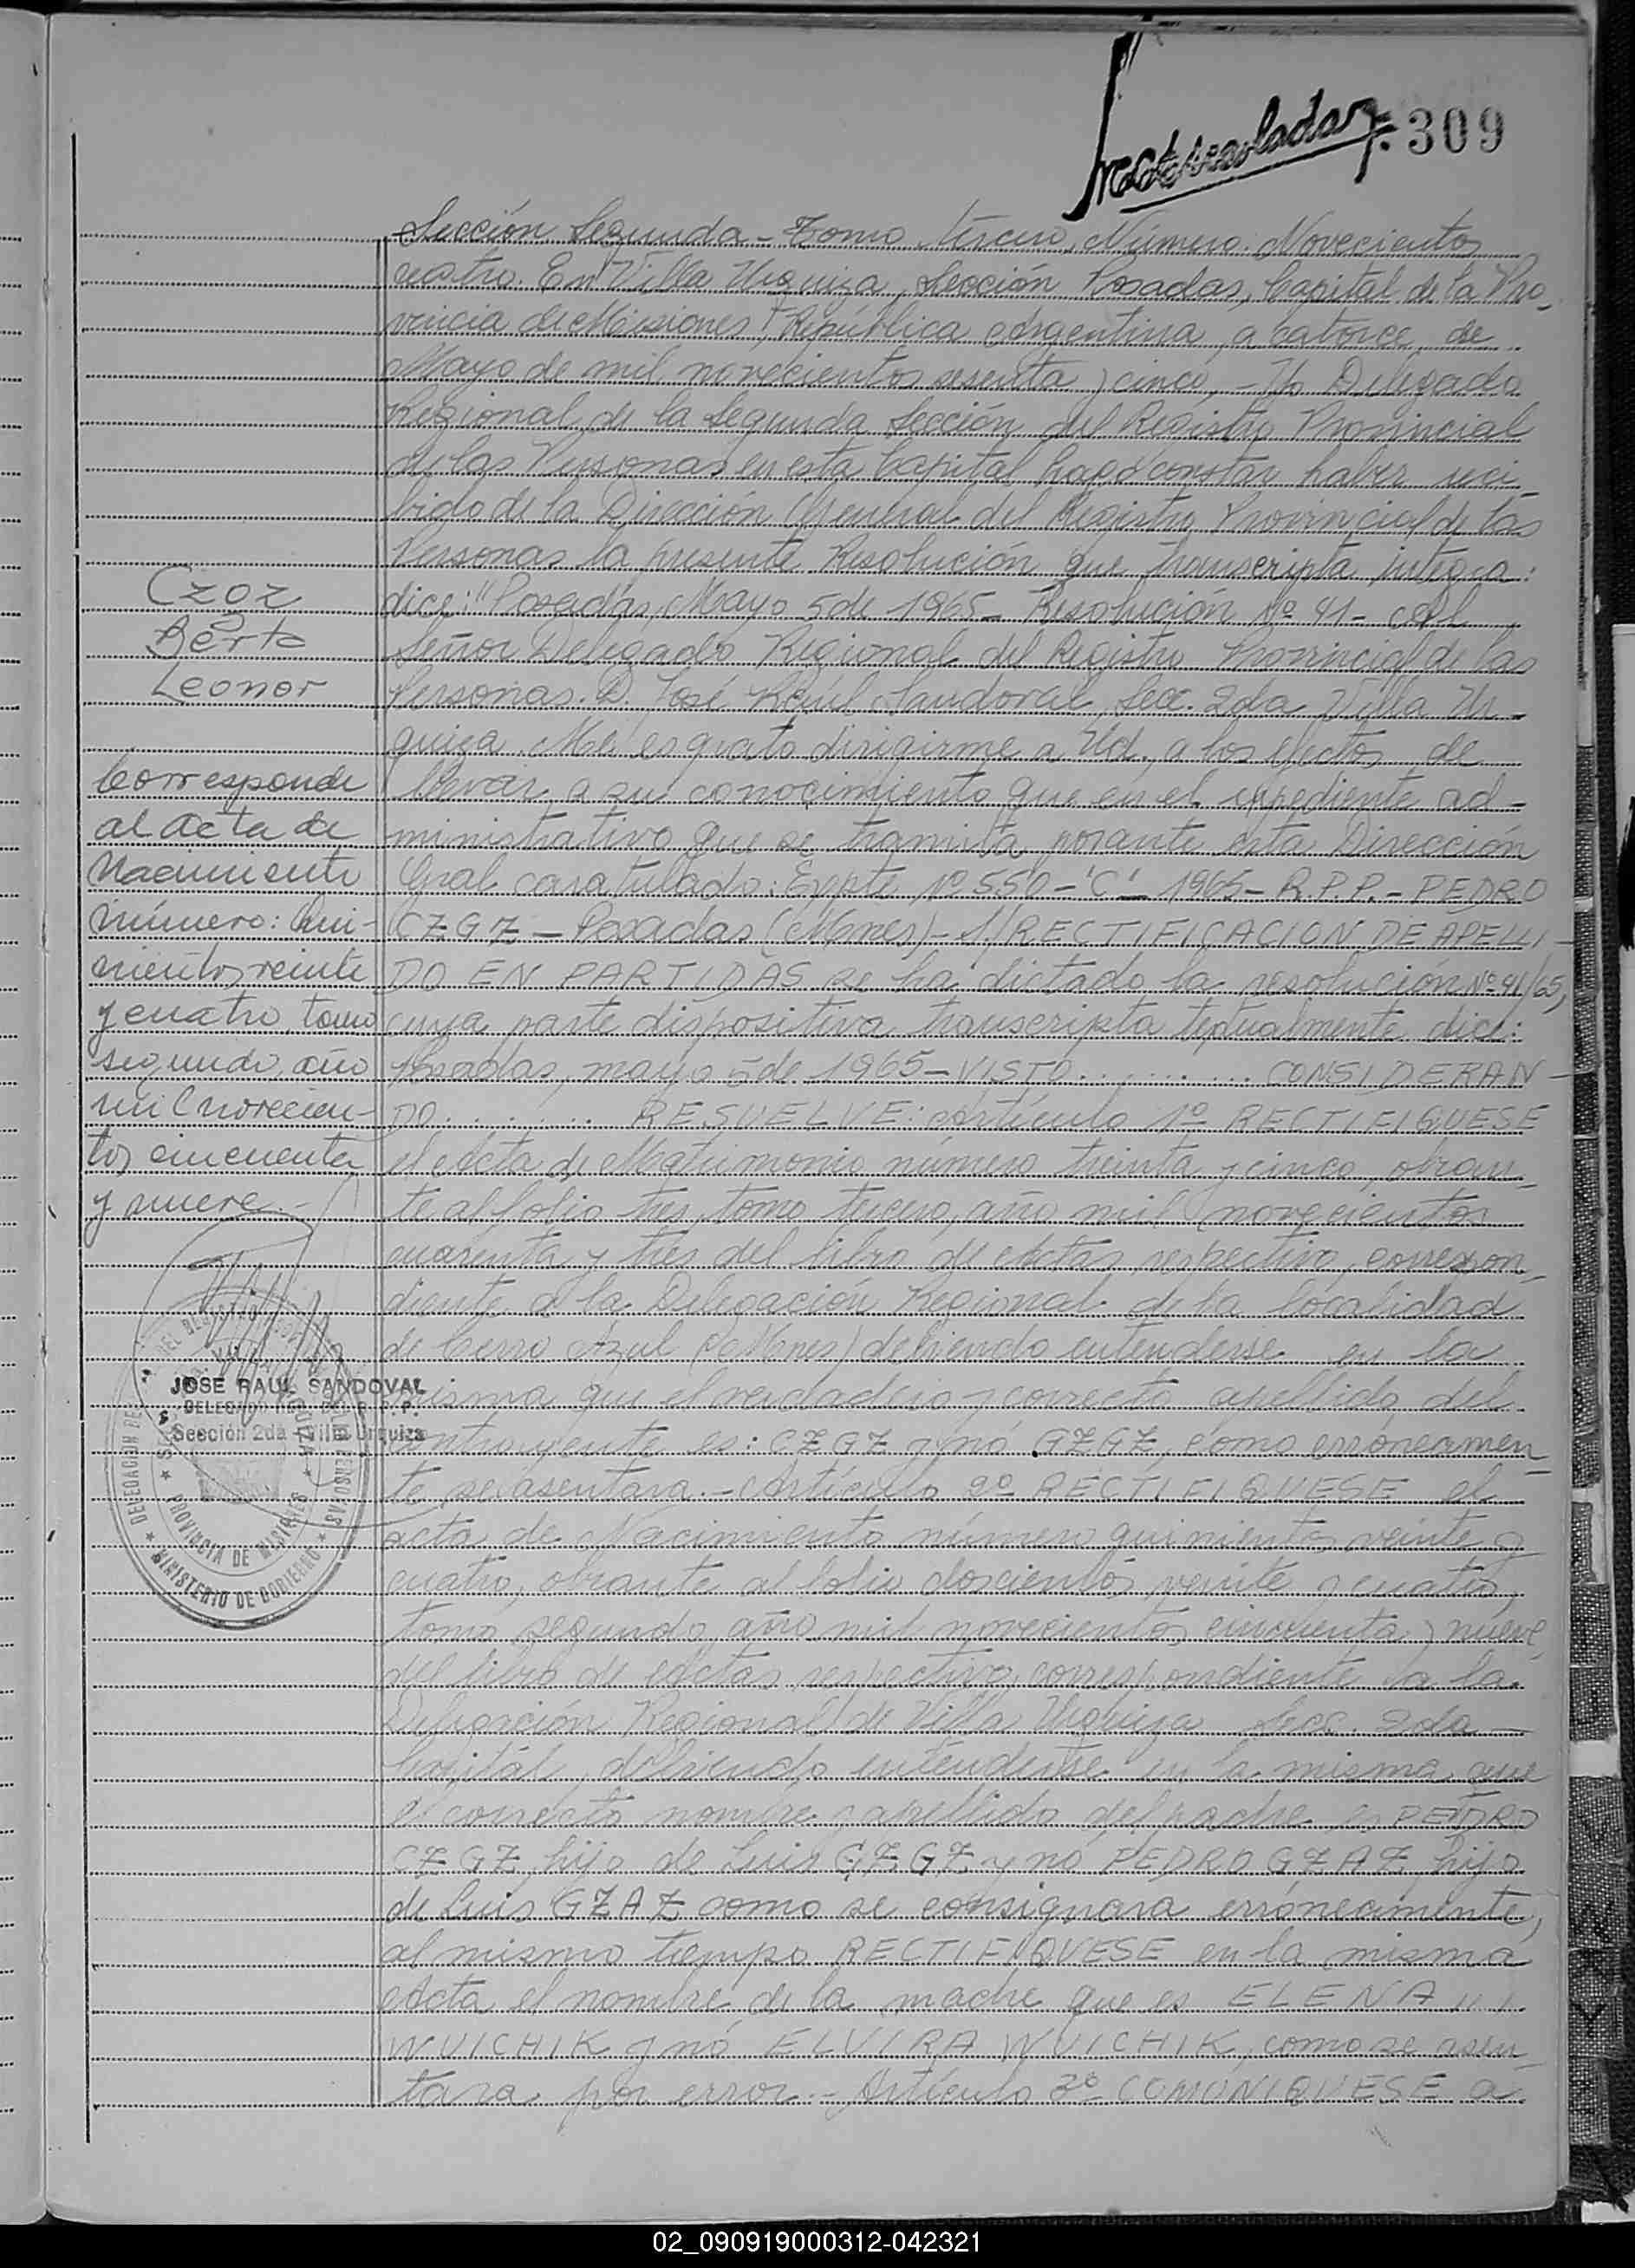 309
Sección Segunda - Tomo tercero, Número: Novecientos
cuatro. En Villa Urquiza, Sección Posadas, Capital de la Pro-
vincia de Misiones, República Argentina, a catorce de
Mayo de mil novecientos sesenta y cinco, - Yo Delegado
Regional de la Segunda Sección del Registro Provincial
de las Personas en esta Capital hago constar haber reci-
bido de la Dirección General del Registro Provincial de las
Personas la presente Resolución que transcripta íntegra:
dice: "Posadas, Mayo 5 de 1965 - Resolución Nº 41 - Al
Señor Delegado Regional del Registro Provincial de las
Personas. D. José Raúl Sandoval, Sec. 2da Villa Ur-
quiza. Me es grato dirigirme a Ud. a los efectos de
llevar a su conocimiento que en el expediente ad-
ministrativo que se tramita por ante esta Dirección
Gral caratulado: Expte Nº 550 - "C" - 1965 - R.P.P. - PEDRO
CZGZ - Posadas (Mnes) - S/ RECTIFICACION DE APELLI-
DO EN PARTIDAS se ha dictado la resolución Nº 41/65,
cuya parte dispositiva transcripta textualmente dice:
Posadas, mayo 5 de 1965 - VISTO .......... CONSIDERAN-
DO ........ RESUELVE: Artículo 1º RECTIFIQUESE
el Acta de Matrimonio número treinta y cinco, obran-
te al folio tres, tomo tercero, año mil novecientos
cuarenta y tres del libro de Actas respectivo, correspon-
diente a la Delegación Regional de la localidad
de Cerro Azul (Mnes) debiendo entenderse en la
misma que el verdadero y correcto apellido del
contrayente es: CZGZ y nó GZGZ, como erróneamen-
te se asentara. - Artículo 2º RECTIFIQUESE el
acta de Nacimiento número quinientos veinte y
cuatro, obrante al folio doscientos veinte y cuatro,
tomo segundo, año mil novecientos cincuenta y nueve,
del libro de Actas respectivo, correspondiente a la
Delegación Regional de Villa Urquiza Secc. 2da -
Capital, debiendo entenderse en la misma que
el correcto nombre y apellido del padre es PEDRO
CZGZ, hijo de Luis CZGZ y nó PEDRO GZAZ, hijo
de Luis GZAZ como se consignara erróneamente,
al mismo tiempo RECTIFIQUESE en la misma
Acta el nombre de la madre que es ELENA
WUICHIK y nó ELVIRA WUICHIK, como se asen-
tara por error. - Artículo 3º COMUNIQUESE a
Czgz
Berta
Leonor
Corresponde
al acta de
Nacimiento
número: Qui-
nientos veinte
y cuatro, tomo
segundo, año
mil novecien-
tos cincuenta
y nueve -
JOSE RAUL SANDOVAL
DELEGADO REG. DEL R.P.P.
Sección 2da - Villa Urquiza
PROVINCIA DE MISIONES
MINISTERIO DE GOBIERNO
02_090919000312-042321